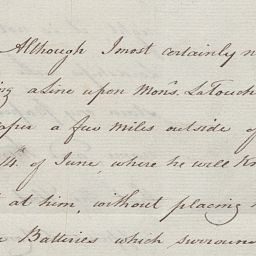 Although I most certainly n
ng a line upon Mons. LaTouch
aper a few miles outside of
14. of June, where he will Kn
at him, without placing
Batteries which surroun